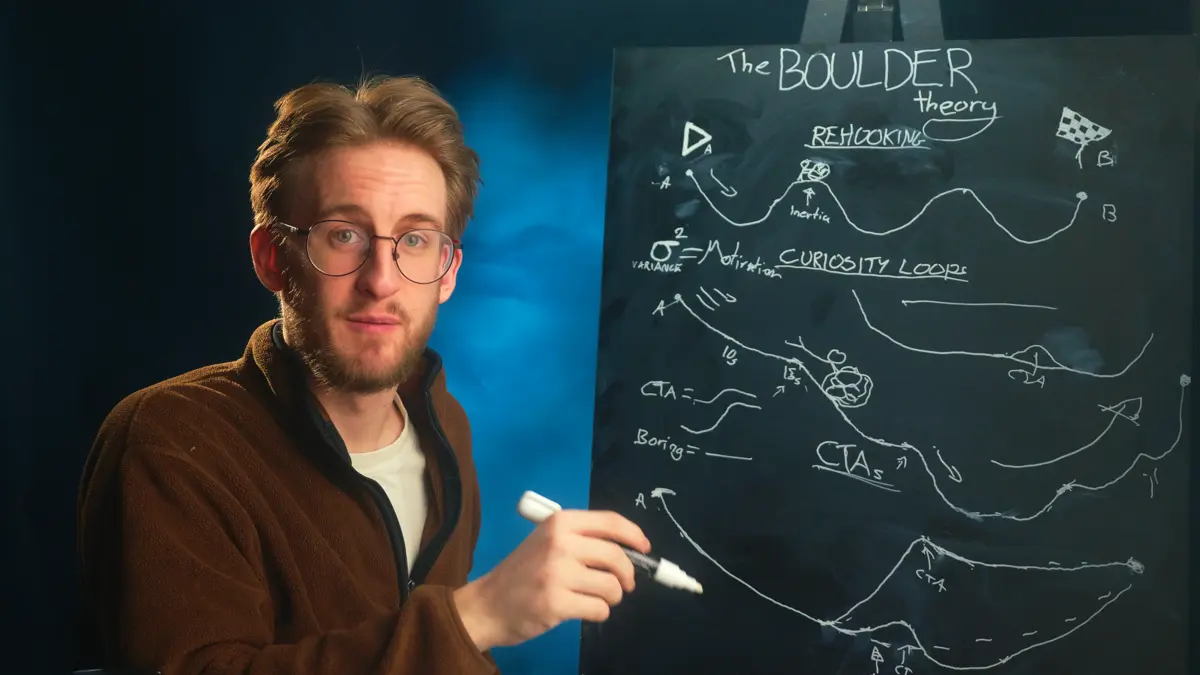 The BOULDER
theory
REHOOKING
A
B
A
B
Inertia
σ² = Motivation
VARIANCE
CURIOSITY LOOPS
A
10s
15s
CTA
CTA =
Boring =
CTAs
A
CTA
CT